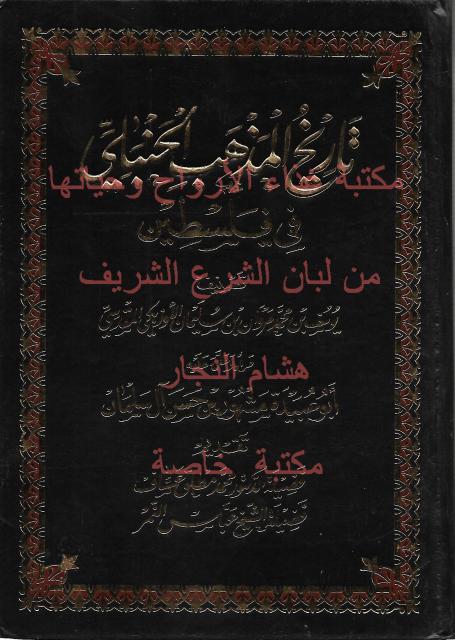 تاريخ المذهب الحنبلي
مكتبة غذاء الأرواح وحياتها
في فلسطين
من لبان الشرع الشريف
تصنيف
يوسف بن محمد مروان بن سليمان الأوزبكي المقدسي
هشام النجار
أبو عبيدة مشهور بن حسن آل سلمان
تقديم
مكتبة خاصة
فضيلة الدكتور
فضيلة الشيخ